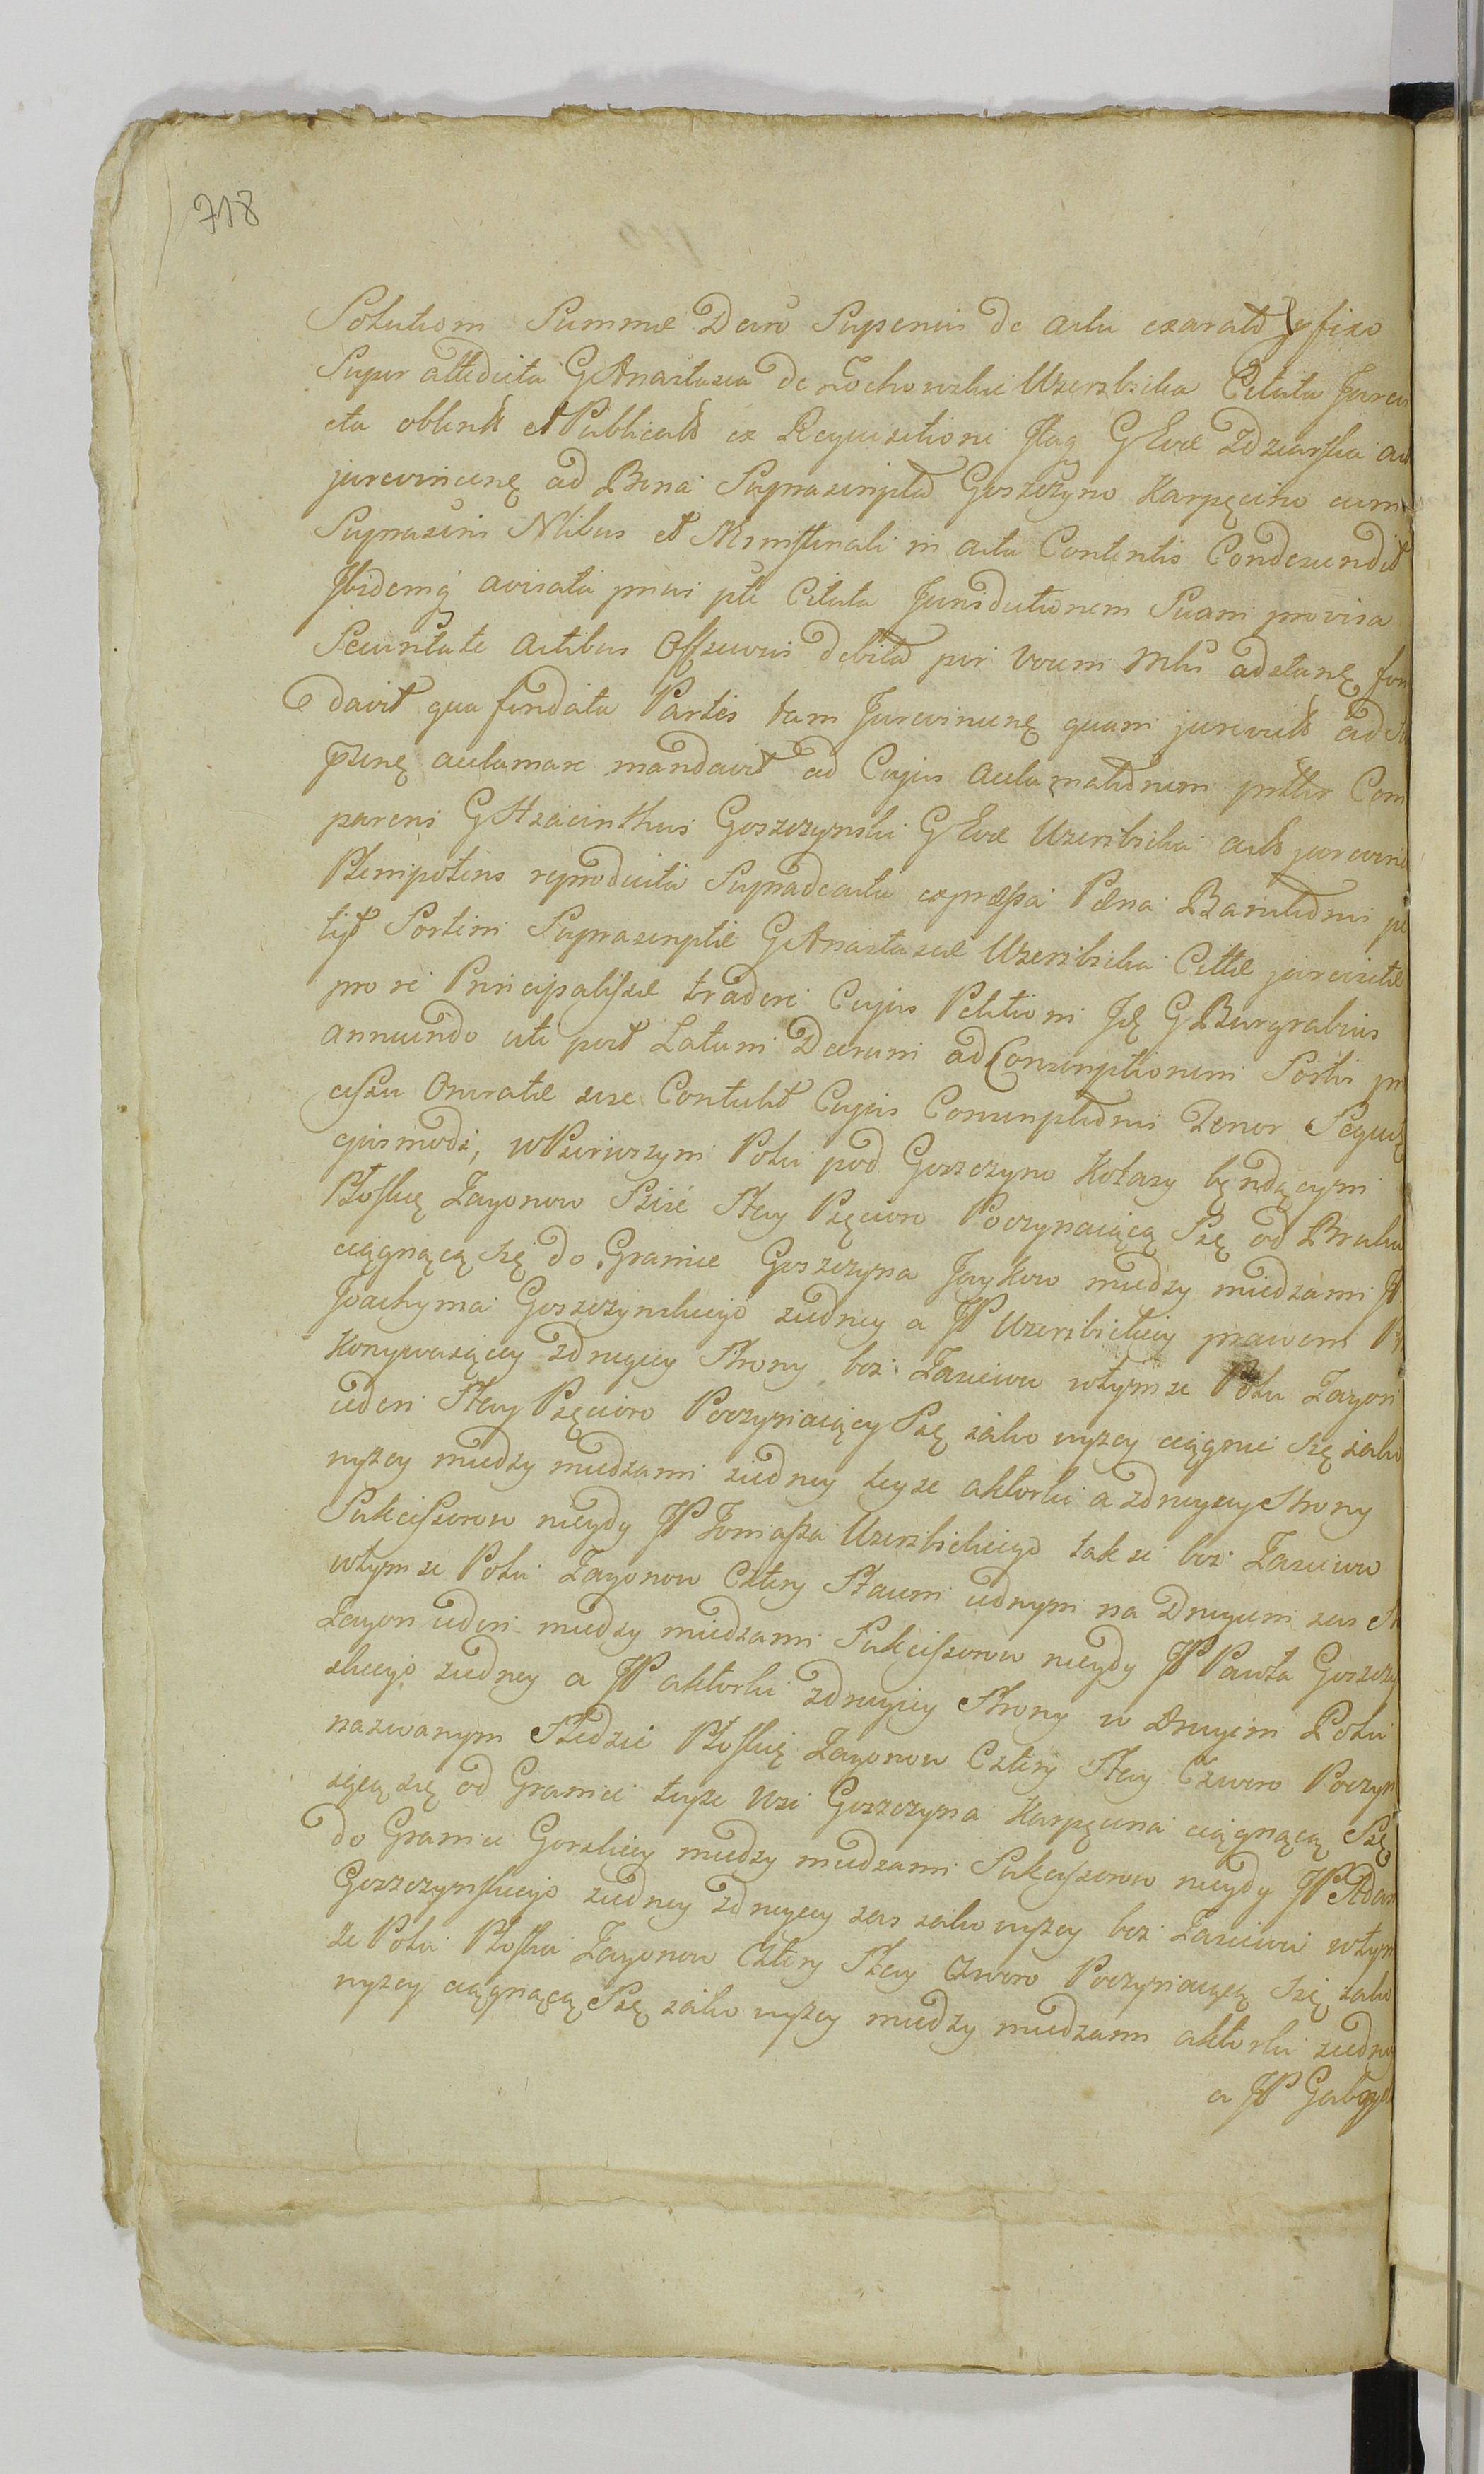 718
Solutiom Summæ Decrō Supserius de actu exarato y fixo
Super attedicta G Anastasia de Zochowskie Uzerzbicka Citata Jurevi
cta oblent et Publicat ex Requisitione Itaq G Evæ Zdziarska act
jurevincenę ad Bona Suprascripta Goszczyno Karpęcino cum
Suprascris Nlibus et Mimstinali in actu Contentis Condescendit
Ibidemq avisata prius pte Citata Jurisdictionem Suam provisa
Securitate actibus Offscuius debita per Vocem Mlis adstanę fun
davit qua fundata Partes tam Jurevincenę quam jurevict ad
pszenę acclamare mandavit ad Cujus acclamationem prtter Com
parens G Hyacinthus Goszczynski G Evæ Uzerzbicka act jurevin
Plenipotens reproducta Supradcacta expræssa Pæna Banitionis pe
tijt Sortem Suprascriptæ G Anastasiæ Uzerzbicka Cittæ jurevictæ
pro re Principalissæ tradere Cujus Petitioni Jd G Burgrabius
annuendo uti post Latum Decrum ad Conscriptionem Sortis pr
cessu Oneratæ sese Contulit Cujus Conscriptionis Tenor Sequit
ejusmodi, wPierwszym Polu pod Goszczyno Kołazy będącym
Płoskię Zagonow Sześć Stay Pięcioro Poczynaiącą Się od Bruku
ciągnącą się do Granic Goszczyna Jaykow miedzy miedzami JP
Joachyma Goszczynskiego ziedney a JP Uzerzbickiey prawem P
konywaiącey zdrugiey Strony bez Zasiewu wtymze Polu Zagon
ieden Stay Pięcioro Poczynaiący Się iako wyzey ciągnie się iako
wyzey miedzy miedzami ziedney teyze aktorki a zdrugiey Strony
Sukcessorow niegdy JP Tomasza Uzerzbickiego takze bez Zasiewu
wtymze Polu Zagonow Cztery Staiem iednym na Drugiem zas St
Zagon ieden miedzy miedzami Sukcessorow niegdy JP Pawła Goszczy
skiego ziedney a JP aktorki zdrugiey Strony w drugim Polu
nazwanym Siedzie Płoskię Zagonow Cztery Stay Czworo Poczyn
aiącą się od Granicy teyze Wsi Goszczyna Karpęcina ciągnącą Się
do Granicy Gorskiey miedzy miedzami Sukcessorow niegdy JP Adam
Goszczynskiego ziedney zdrugiey zas iako wyzey bez Zasiewu wtym
ze Polu Płoska Zagonow Cztery Stay Czworo Poczynaiącą się iako
wyzey ciągnącą Się iako wyzey miedzy miedzami aktorki ziedney
a JP Gabry